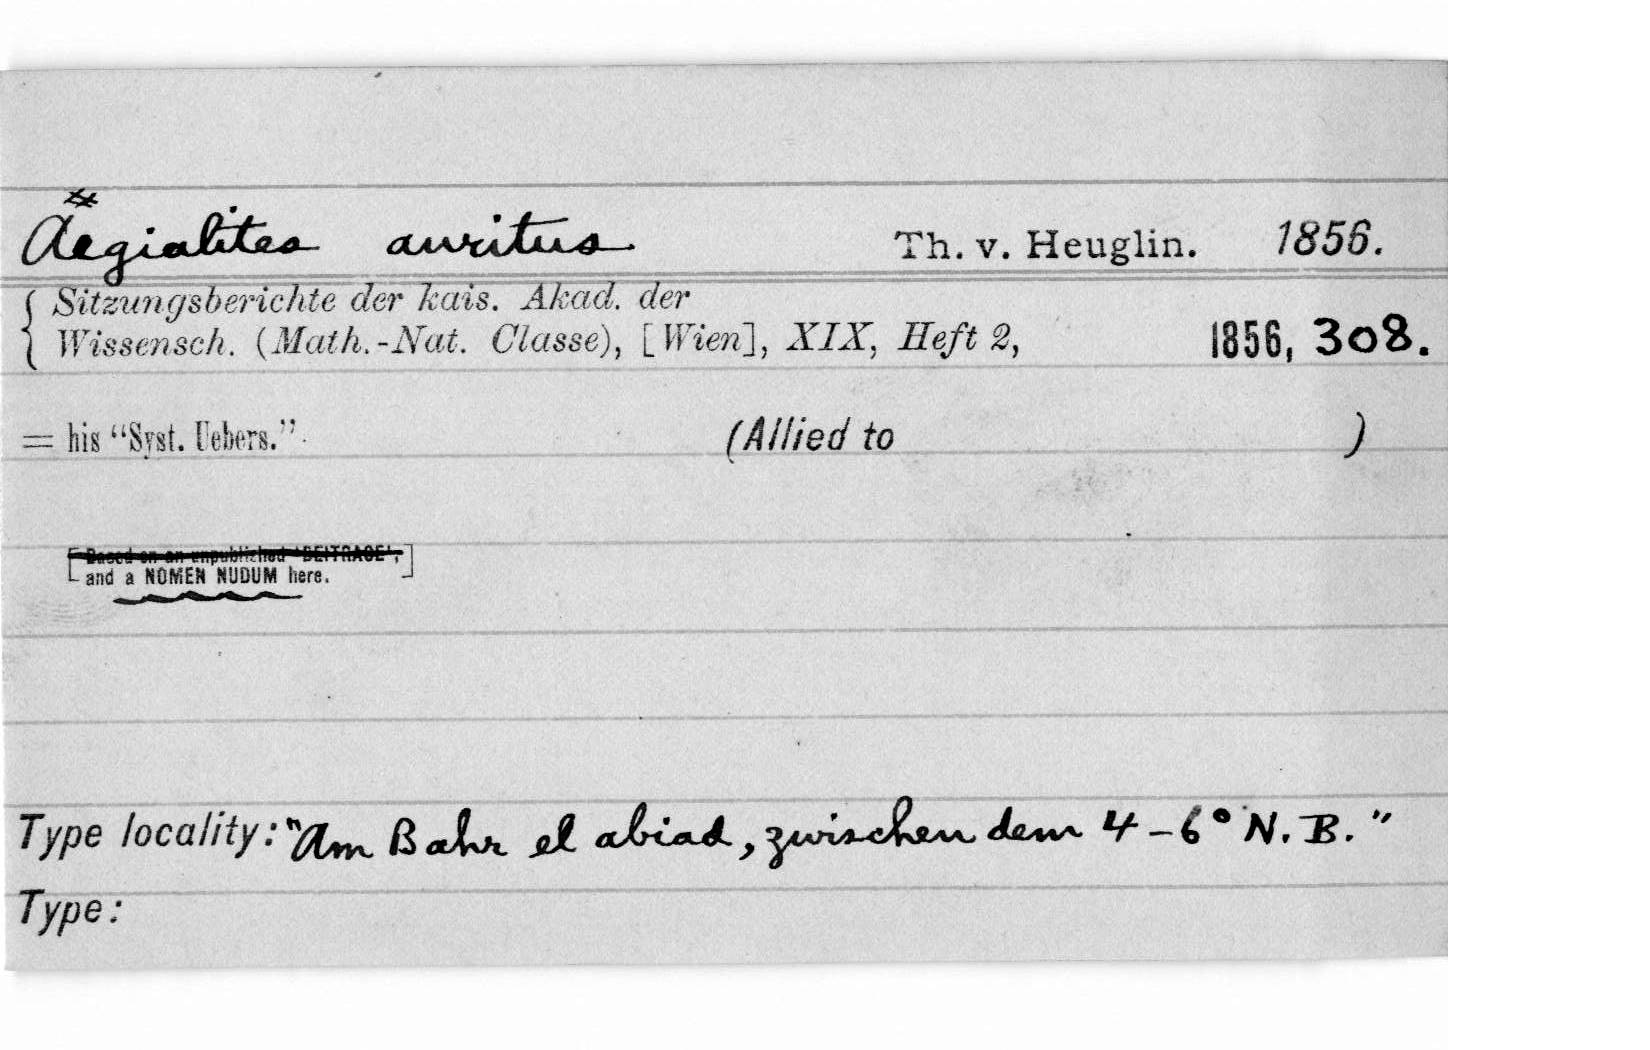 Aegialites auritus Th. v. Heuglin. 1856.
Sitzungsberichte der kais. Akad. der
Wissensch. (Math.-Nat. Classe), [Wien], XIX, Heft 2, 1856, 308.
= his "Syst. Uebers." (Allied to )
[Based on an unpublished 'BEITRAGE',
and a NOMEN NUDUM here.]
Type locality: "Am Bahr el abiad, zwischen dem 4–6° N. B."
Type: